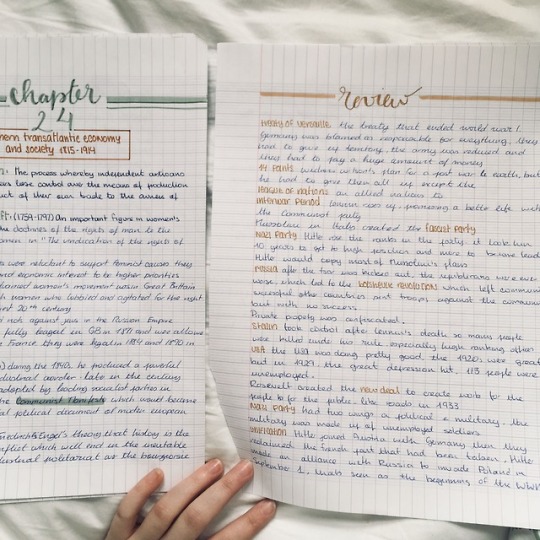 chapter
24
hern transatlantic economy
and society 1815-1914
The process whereby independent artisans
ers lose control over the means of production
of their own trade to the owners of
(1759-1797) An important figure in women's
the doctrines of the rights of man to the
omen in "The vindication of the rights of
were reluctant to support feminist causes they
and economic interest to be higher priorities
women's movement was in Great Britain
women who lobbied and agitated for the right
20th century
riot against jews in the Russian Empire
fully legal in GB in 1871 and were allowed
France they were legal in 1884 and 1890 in
during the 1840s, he produced a powerful
industrial order. late in the century
adopted by leading socialist parties in
the Communist Manifesto which would become
political document of modern european
Engel's theory that history is the
conflict which will end in the inevitable
industrial proletariat as the bourgeoisie
review
Treaty of Versaille the treaty that ended world war I.
Germany was blamed as responsible for everything, they
had to give up territory, the army was reduced and
they had to pay a huge amount of money
14 Points Wilson's plan for a post war to
he had to give them all up except the
League of nations an allied nations to
Interwar Period Lenin promising a better life with
the communist party
Mussolini in Italy created the Fascist Party
Nazi Party Hitler rose the ranks in the party, it took him
10 years to get to high position and more to become leader
Hitler would copy most of Mussolini's plans
Russia after the tsar was kicked out, the republicans were
which led to the bolshevik revolution which left communists
other countries sent troops against the communists
but with no success.
Private property was confiscated.
Stalin took control after Lenin's death so many people
were killed under his rule especially high ranking officers
USA the USA was doing pretty good, the 1920s were great
but in 1929, the great depression hit. 1/3 people were
unemployed.
Roosevelt created the new deal to create work for the
people for the public. like roads in 1933
Nazi Party had two wings a political & military. the
military was made up of unemployed soldiers
Hitler joined Austria with Germany then they
reclaimed the french part that had been taken. Hitler
made an alliance with Russia to invade Poland in
September 1, that's seen as the beginning of the WWII